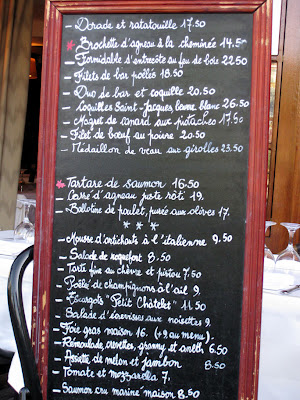 - Dorade et ratatouille 17.50
* Brochette d'agneau à la cheminée 14.50
- Formidable d'entrecôte au feu de bois 22.50
- Filets de bar poêlés 18.50
- Duo de bar et coquille 20.50
- Coquilles Saint-Jacques beurre blanc 26.50
- Magret de canard aux pistaches 17.50
- Filet de bœuf au poivre 20.50
- Médaillon de veau aux girolles 23.50
* Tartare de saumon 16.50
- Carré d'agneau juste rôti 19.
- Ballotine de poulet, purée aux olives 17.
* * *
- Mousse d'artichauts à l'italienne 9.50
- Salade de roquefort 8.50
- Tarte fine au chèvre et pistou 7.50
- Poêlée de champignons à l'ail 9.
- Escargots "Petit Châtelet" 11.50
- Salade d'écrevisses aux noisettes 9.
- Foie gras maison 16. (+9 au menu).
- Rémoulade, crevettes, granny et aneth 6.50
- Assiette de melon et jambon 8.50
- Tomate et mozzarella 7.
- Saumon cru mariné maison 8.50